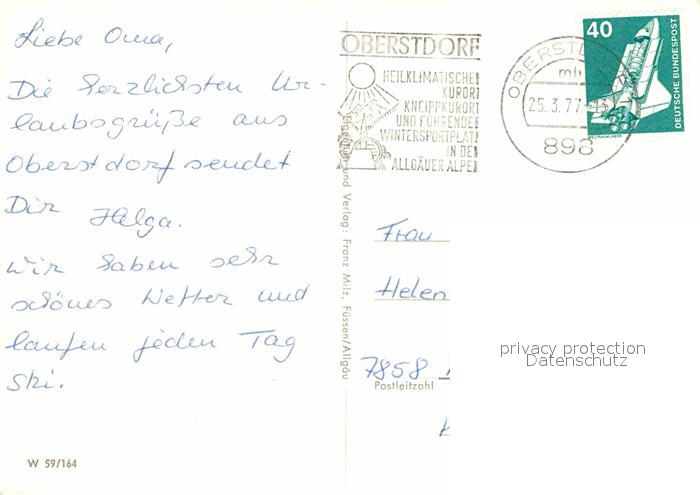 Liebe Oma,
Die herzlichsten Ur-
laubsgrüße aus
Oberstdorf sendet
Dir Helga.
Wir haben sehr
schönes Wetter und
laufen jeden Tag
Ski.
W 59/164
Eigentum und Verlag: Franz Milz, Füssen/Allgäu
OBERSTDORF
HEILKLIMATISCHER
KURORT
KNEIPPKURORT
UND FÜHRENDER
WINTERSPORTPLATZ
IN DEN
ALLGÄUER ALPEN
mb
25.3.77
898
40
DEUTSCHE BUNDESPOST
WELTRAUMLABOR
Frau
Helen
7858
Postleitzahl
K
privacy protection
Datenschutz